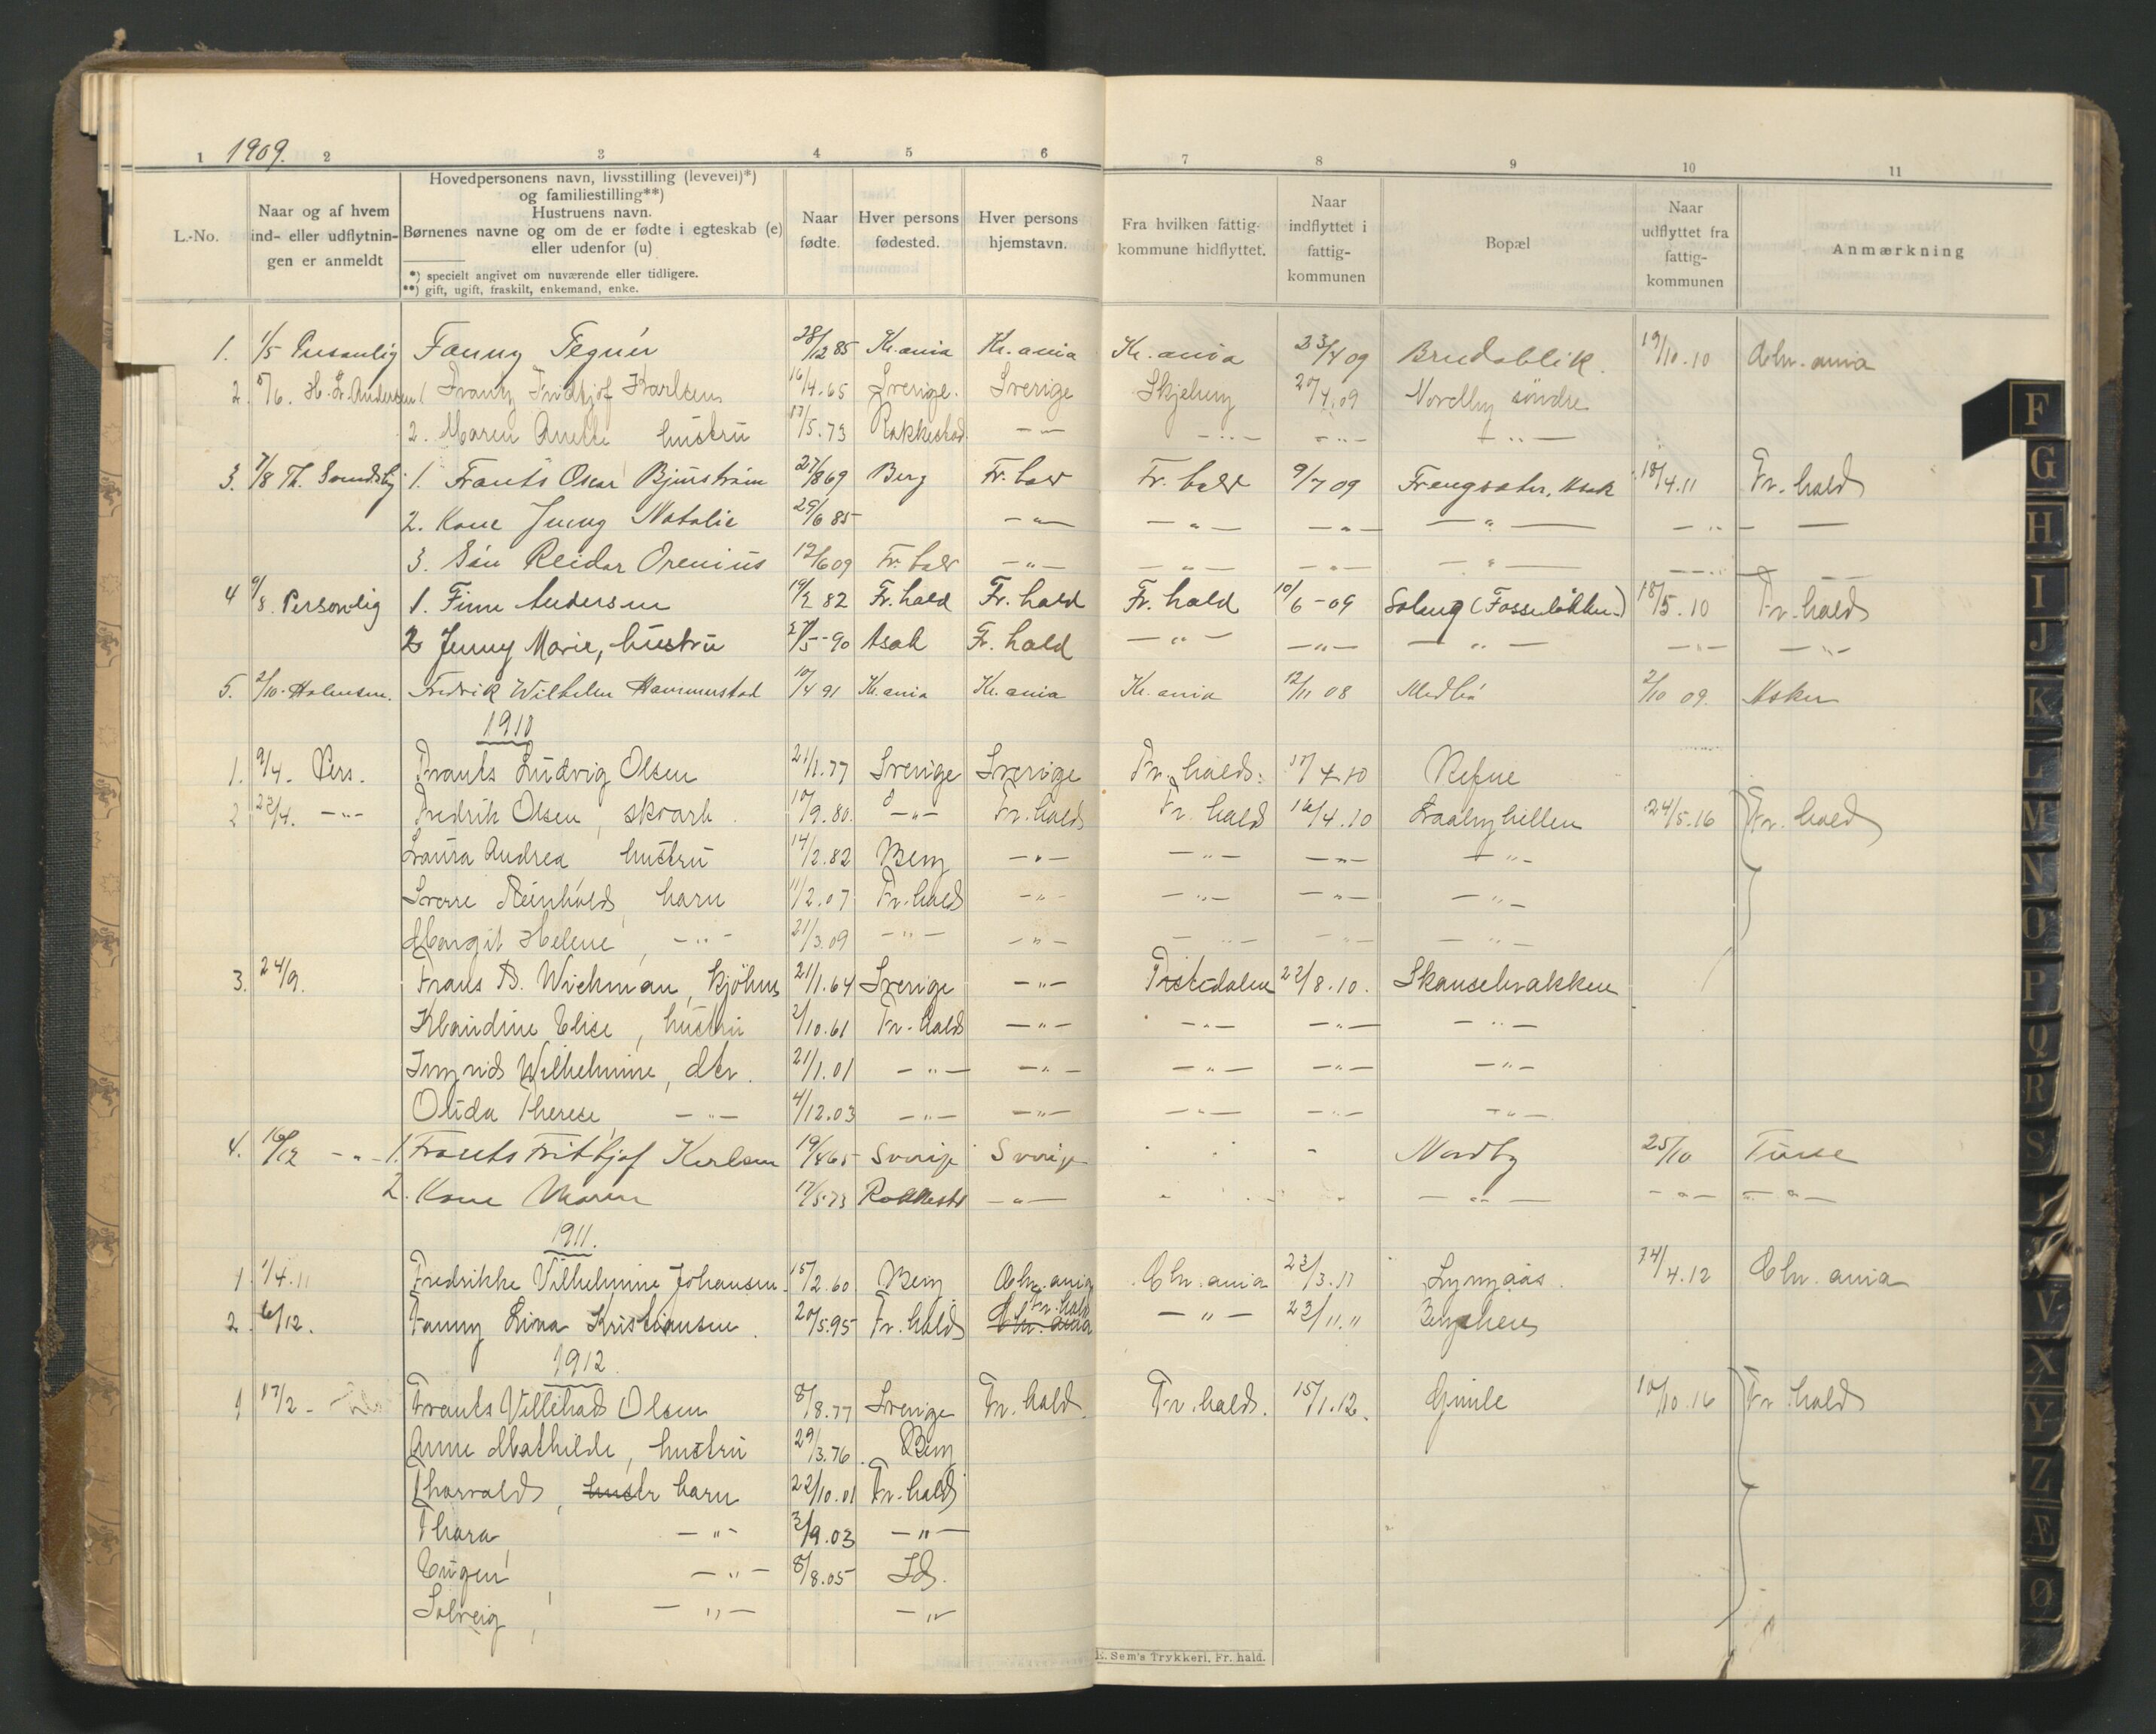 1909.
1 2 3 4 5 6 7 8 9 10 11
L.-No.
Naar og af hvem ind- eller udflytningen er anmeldt
Hovedpersonens navn, livsstilling (levevei)*)
og familiestilling**)
Hustruens navn.
Børnenes navne og om de er fødte i egteskab (e)
eller udenfor (u)
*) specielt angivet om nuværende eller tidligere.
**) gift, ugift, fraskilt, enkemand, enke.
Naar fødte.
Hver persons fødested.
Hver persons hjemstavn.
Fra hvilken fattigkommune hidflyttet.
Naar indflyttet i fattigkommunen
Bopæl
Naar udflyttet fra fattigkommunen
Anmærkning
1. 1/5 Personlig Fanny Tegnér 28/12 85 Kr.ania Kr.ania Kr.ania 23/4 09 Bredablik 19/10.10 Chr.ania
2. H. L. Andersen 1 Frantz Fridtjof Karlsen 16/4.65 Sverige. Sverige Skjeberg 20/4.09 Nordby söndre
2. Maren Anette hustru 17/5.73 Rakkestad — " — — " — — " — — " —
3. 7/8 Th. 1. Frants Oscar Bjurström 27/8 69 Berg Fr.hald Fr.hald 9/7 09 Asak 18/4.11 Fr.hald
2. Kone Jenny Natalie 29/6 85 — " — — " — — " — — " — — " — —
3. Sön Reidar 12/6 09 Fr.hald — " — — " — — " — — " — — " — —
4 9/8. Personlig 1. Finn Andersen 19/2 82 Fr.hald Fr.hald Fr.hald 10/6-09 Solberg (Fosseløkken) 18/5.10 Fr.hald
2 Jenny Marie, hustru 27/5-90 Asak Fr.hald — " — — " — — " — — " — — " —
5. 2/10. Holmsen. Fredrik Wilhelm Hammerstad 10/4 91 Kr.ania Kr.ania Kr.ania 12/11 08 Medbö 2/10 09. Asker
1910
1. 9/4. Pers. Frants Ludvig Olsen 21/1.77 Sverige Sverige Fr.hald. 17/4.10 Refne
2 23/4. — " — Fredrik Olsen, skoarb. 10/9.80. — " — Fr.hald Fr.hald 16/4.10 24/5.16 Fr.hald
Laura Andrea hustru 14/2.82 Berg — " — — " — — " — — " —
Sverre Reinhold, barn 11/2.07 Fr.hald — " — — " — — " — — " —
Margit Helene, — " — 21/3.09 — " — — " — — " — — " — — " —
3. 24/9. Frans B. Wickman, kjöbm 21/1.64 Sverige — " — Tistedalen 22/8.10. Skansebakken
Klaudine Elise, hustru 2/10.61 Fr.hald — " — — " — — " — — " —
Ingrid Wilhelmine, dtr. 21/1.01 — " — — " — — " — — " — — " —
Olida Therese, — " — 4/12.03 — " — — " — — " — — " — — " —
4. 16/12 — " — 1. Frants Fritjof Karlsen 19/4 65 Sverige Sverige Nordby 25/10 Tune
2. Kone Maren 17/5 73 Rakkesta — " — — " — — " — — " —
1911.
1 1/4.11 Fredrikke Vilhelmine Johansen 15/2.60 Berg Chr.ania Chr.ania 23/3.11 Lyngaas. 24/4.12 Chr.ania
2 6/12. Fanny Lina Kristiansen. 20/5.95 Fr.hald Chr.ania Fr.hald — " — 23/11." Bergheim
1912
1 17/2 - Frants Villehad Olsen 8/8.77 Sverige Fr.hald. Fr.hald. 15/1.12. Gimle 10/10.16 Fr.hald
Anne Mathilde, hustru 29/3.76. Berg
Thorvald, hustr barn 22/10.01 Fr.hald
Thora — " — 3/9.03 — " —
Eugen — " — 8/8.05 Id.
Solveig, — " — — " —
E. Sem's Trykkeri, Fr. hald.
F
G
H
I
J
K
L
M
N
O
P
Q
R
S
V
X
Y
Z
Æ
Ø